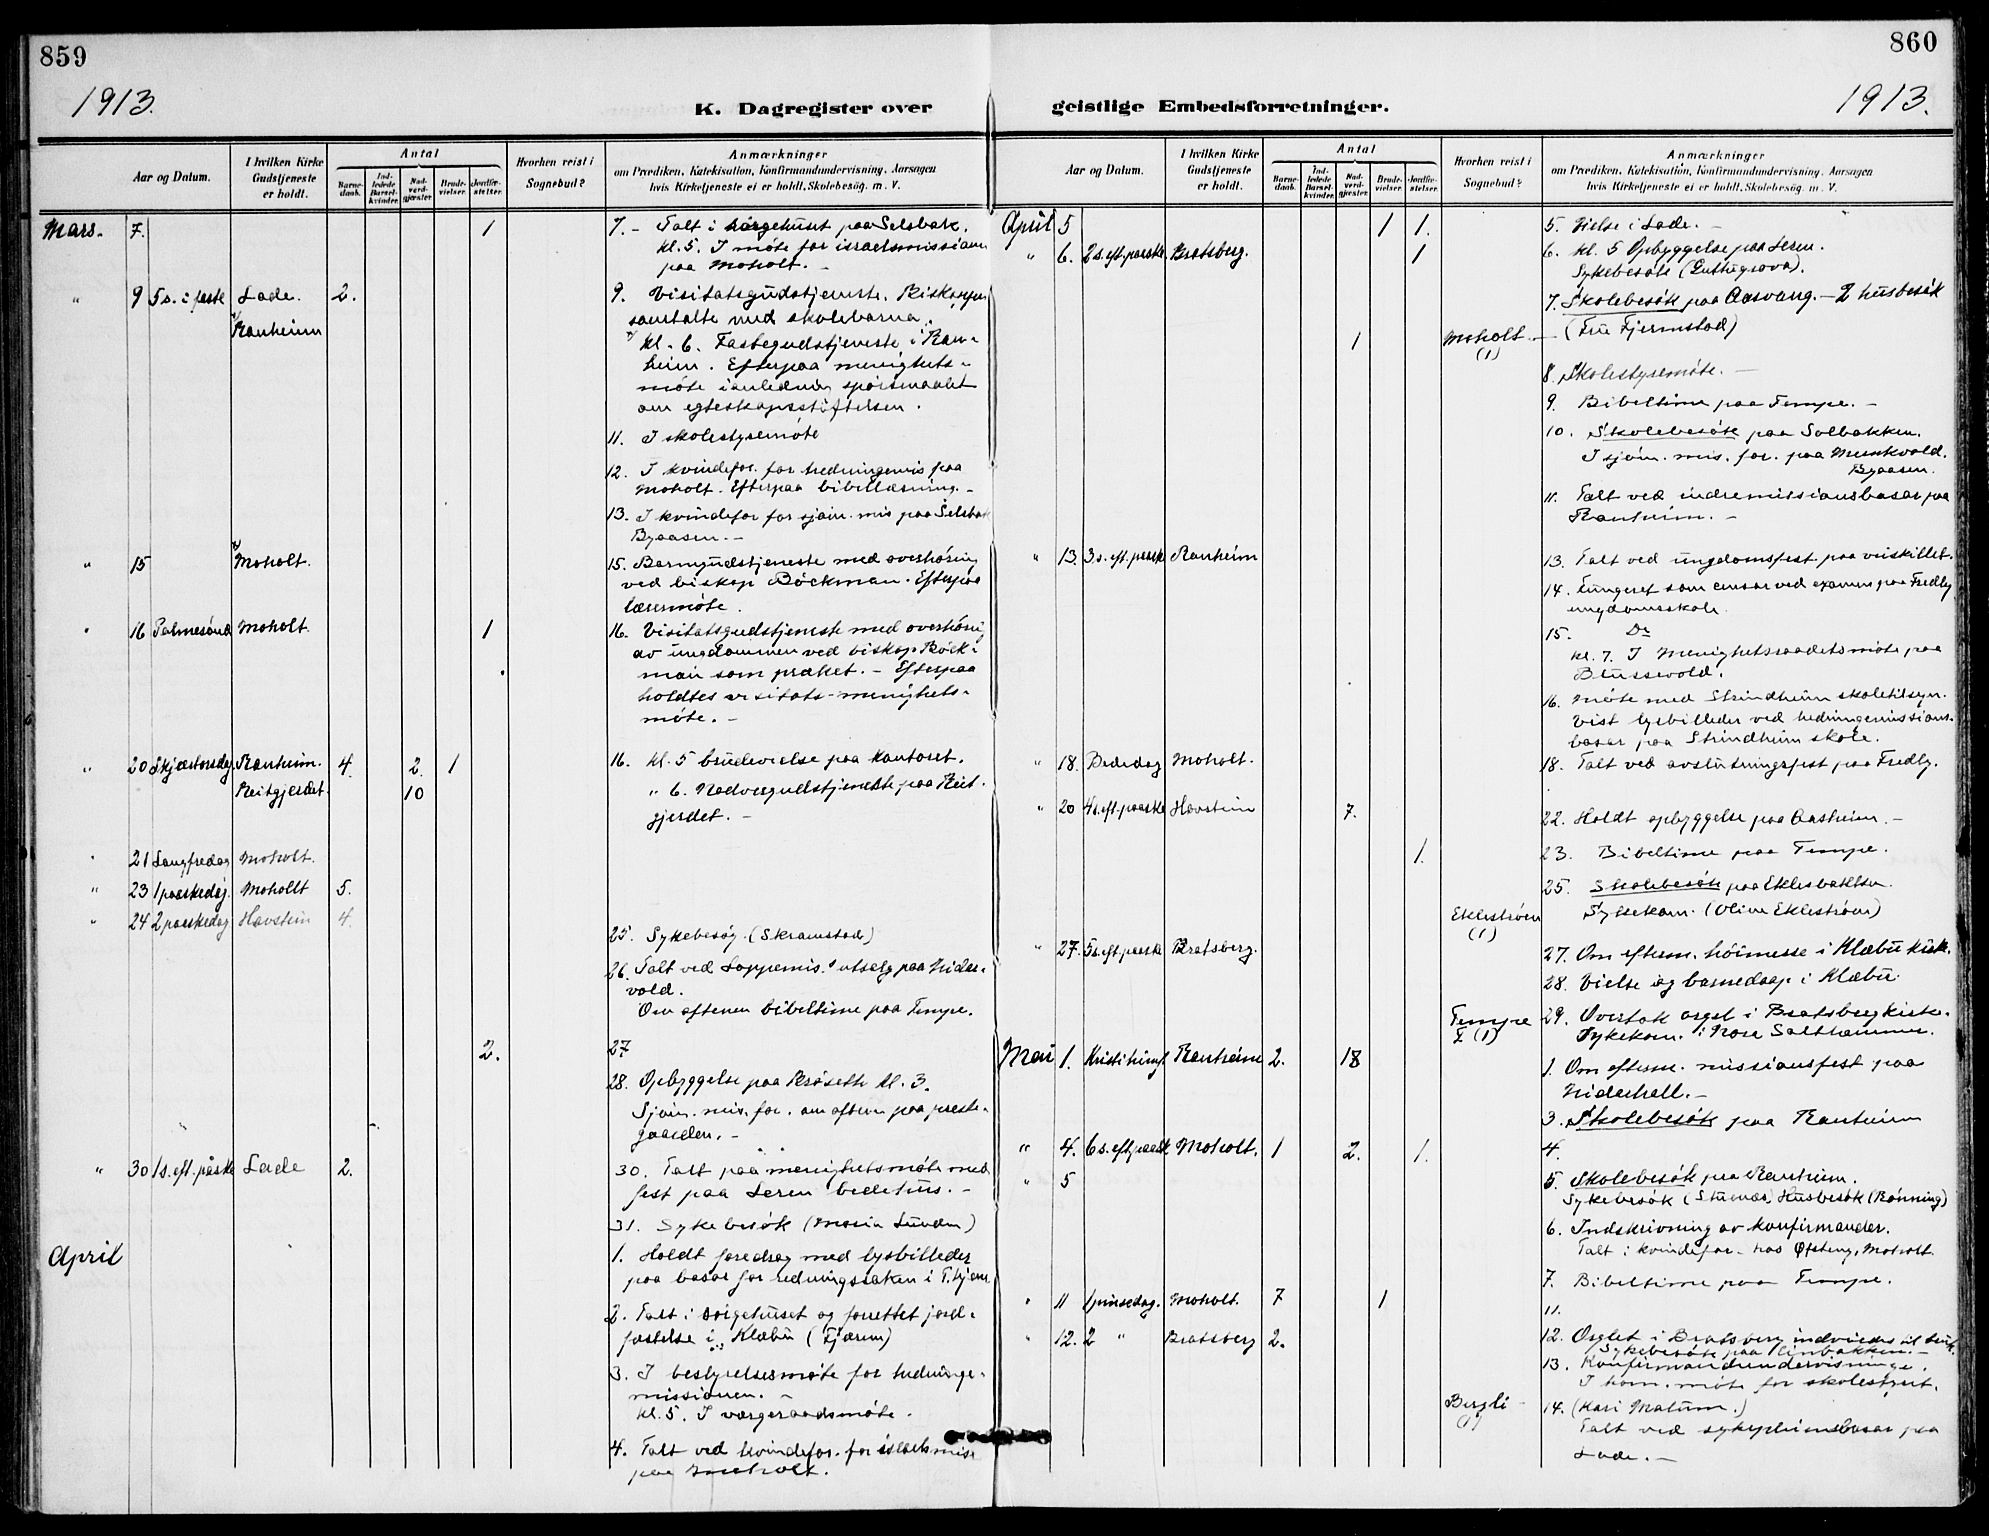 859
860
1913.
K. Dagregister over
geistlige Embedsforretninger.
1913.
Aar og Datum.
I hvilken Kirke
Gudstjeneste
er holdt.
Antal
Barne-
daab.
Ind-
ledede
Barsel-
kvinder.
Nad-
verd-
gjæster.
Brude-
vielser.
Jordfæ-
stelser.
Hvorhen reist i
Sognebud?
Anmærkninger
om Prædiken, Katekisation, Konfirmandundervisning, Aarsagen
hvis Kirketjeneste ei er holdt, Skolebesög, m. V.
Mars. 7. 1
7. - Talt i sørgehuset paa Selsbak.
kl. 5. I møte for israelsmissionen
paa Moholt. -
" 9 5 s. i faste Lade. 2.
Ranheim
9. Visitatsgudstjeneste. Biskoppen
samtalte med skolebarna.
kl. 6. Fastegudstjeneste i Ran-
heim. Efterpaa menighets-
møte i anledning spørsmaalet
om egteskapsstiftelsen.
11. I skolestyremøte
12. I kvindefor. for hedningemis paa
Moholt. Efterpaa bibellæsning. -
13. I kvindefor for sjøm. mis paa Selsbak
Byaasen. -
" 15 Moholt.
15. Barnegudstjeneste med overhøring
ved biskop Bøckman. Efterpaa
læremøte.
" 16 Palmesønd Moholt. 1
16. Visitatsgudstjeneste med overhøring
av ungdommen ved biskop Bøck-
man som præket. - Efterpaa
holdtes visitats-menighets-
møte. -
" 20 Skjærtorsdag Ranheim. 4. 2. 1
Reitgjerdet. 10
16. kl. 5 brudevielse paa kontoret.
" 6. Nadvergudstjeneste paa Reit-
gjerdet. -
" 21 Langfredag Moholt.
" 23 1 paaskedag. Moholt 5.
" 24 2 paaskedag Havstein 4.
25. Sykebesøg. (Skramstad)
26. Talt ved Lappemis. utsalg paa Nidar-
vold.
Om aftenen bibeltime paa Tempe.
2.
27
28. Opbyggelse paa Brøseth kl. 3.
Sjøm. mis. for. om aftenen paa preste-
gaarden. -
" 30 1 s. eft. påske Lade 2.
30. Talt paa menighetsmøte med
fest paa Leren bedehus. -
31. Sykebesøk (Maria Lunden)
April
1. Holdt foredrag med lysbilleder
paa basar for redningssaken i T.hjem
2. Talt i sørgehuset og forrettet jord-
fæstelse i Klæbu (Fjærem)
3. I bestyrelsesmøte for hedninge-
missionen. -
kl. 5. I værgeraadsmøte.
4. Talt ved kvindefor. for israelsmis.
paa Moholt.
Aar og Datum.
I hvilken Kirke
Gudstjeneste
er holdt.
Antal
Barne-
daab.
Ind-
ledede
Barsel-
kvinder.
Nad-
verd-
gjæster.
Brude-
vielser.
Jordfæ-
stelser.
Hvorhen reist i
Sognebud?
Anmærkninger
om Prædiken, Katekisation, Konfirmandundervisning, Aarsagen
hvis Kirketjeneste ei er holdt, Skolebesög, m. V.
April 5 1 1.
5. Vielse i Lade. -
" 6. 2 s. eft. paaske. Bratsberg. 1
6. kl. 5 Opbyggelse paa Leren.
Sykebesøk
7. Skolebesøk paa Aasvang. - 2 husbesøk
1 Moholt. -
(1)
(Fru Fjermstad)
8. Skolestyremøte. -
9. Bibeltime paa Tempe. -
10. Skolebesøk paa Solbakken.
I sjøm. mis. for. paa Munkvold.
Byaasen.
11. Talt ved indremissionsbasar paa
Ranheim. -
" 13. 3 s. eft. paaske Ranheim
13. Talt ved ungdomsfest paa veiskillet.
14. Fungeret som censor ved examen paa Fredly
ungdomsskole.
15. Do
kl. 7. I Menighetsraadetsmøte paa
Blussevold.
16. Møte med Strindheim skoletilsyn.
Vist lysbilleder ved hedningemissions-
basar paa Strindheim skole.
" 18. Bededag Moholt.
18. Talt ved avslutningsfest paa Fredly.
" 20 4 s. eft. paaske Havstein 7.
22. Holdt opbyggelse paa Aasheim. -
1.
23. Bibeltime paa Tempe.
25. Skolebesøk paa Eklesbakken
Eklestrøen
(1)
Sykekom. (Oline Eklestrøen)
" 27. 5 s. eft. paaske Bratsberg.
27. Om efterm. høimesse i Klæbu kirke.
28. Vielse og barnedaap i Klæbu.
Tempe
(1)
29. Overtok orgel i Bratsberg kirke.
Sykekom.
Mai 1. Kristi himf. Ranheim 2. 18
1. Om efterm. missionsfest paa
Nidarhall. -
3. Skolebesøk paa Ranheim
" 4. 6 s. eft. paaske Moholt. 1 2. 1.
4.
" 5
5. Skolebesøk paa Ranheim.
Sykebesøk Husbesøk (Rønning)
6. Indskrivning av konfirmander.
Talt i kvindefor. hos Øfsteng, Moholt
7. Bibeltime paa Tempe.
" 11 1 pinsedag. Moholt. 7 1
11.
" 12. 2 " Bratsberg 2.
12. Orglet i Bratsberg indviedes til bruk.
Sykebesøk paa Linbakken. -
13. Konfirmandundervisninge.
I kom. møte for skolestyret.
Bergli -
(1)
14. (Kari Matum.)
Talt ved sykepleiebasar paa
Lade. -